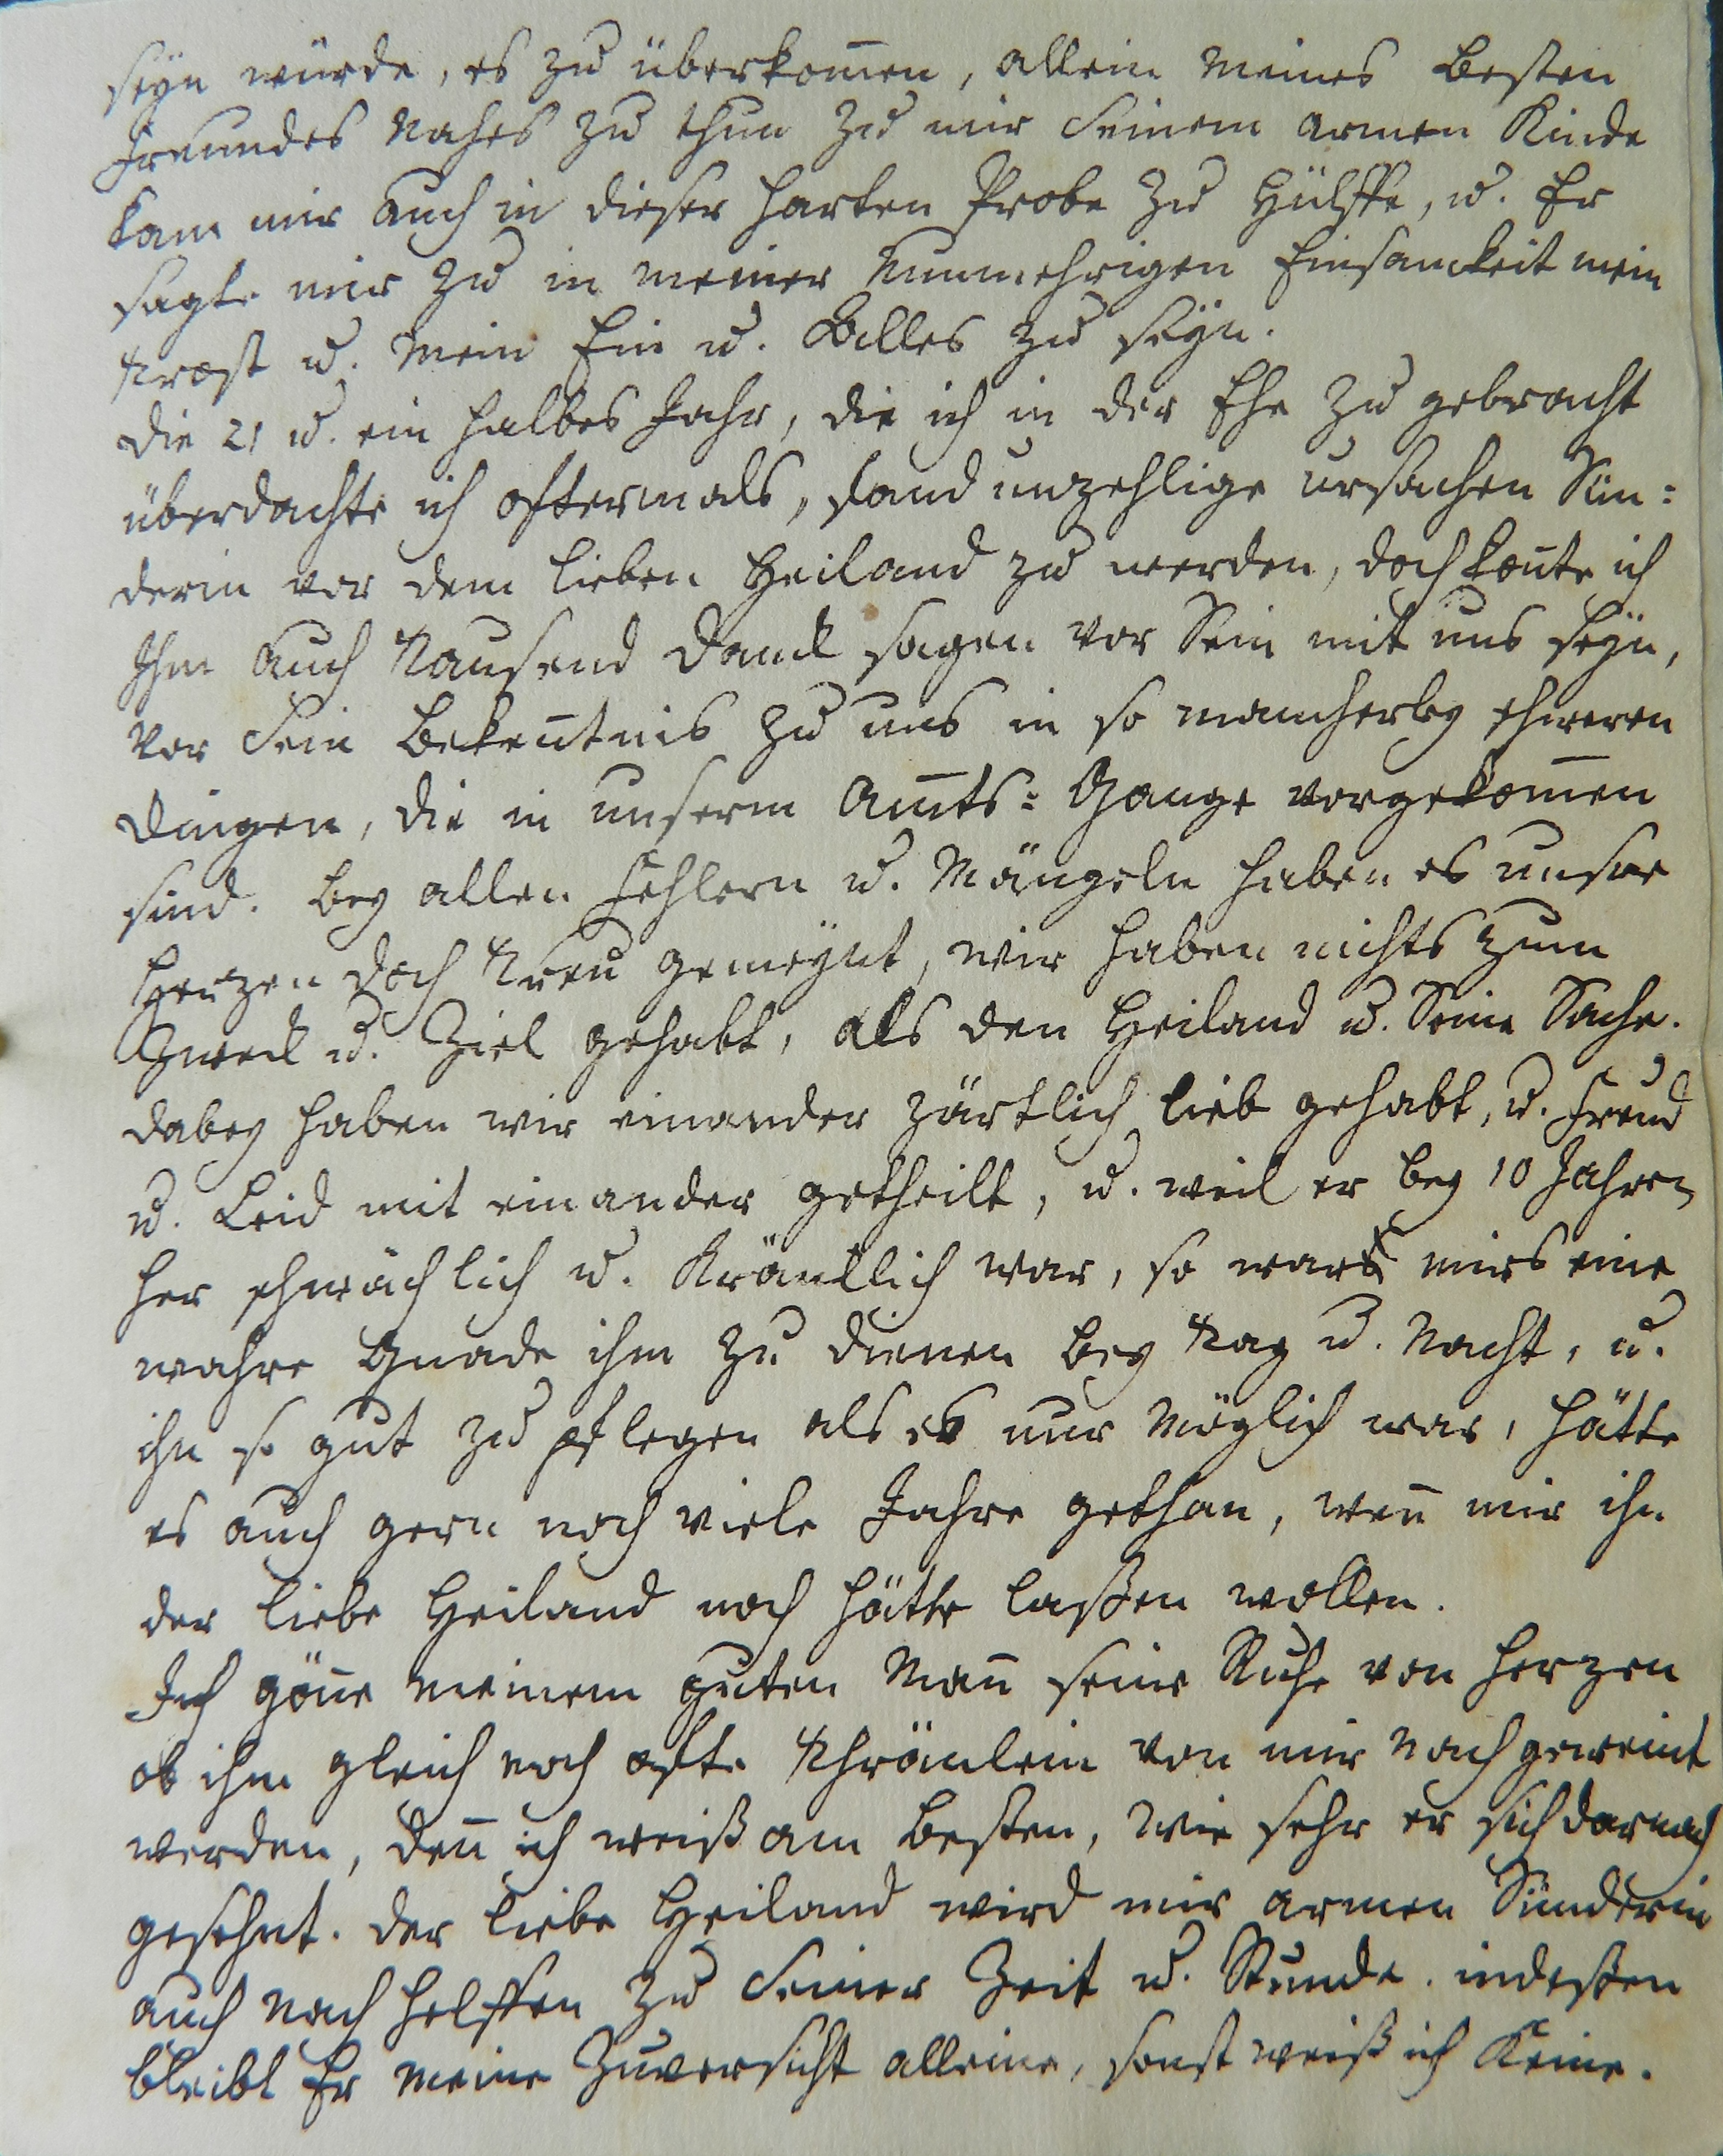 seyn würde, es zu überkom̅en, allein meines besten
Freundes nahes zu thun zu mir Seinem armen Kinde
kam mir auch in dieser harten Probe zu Hülffe, u. Er
sagte mir zu in meiner nunmehrigen Einsamkeit mein
Trost u. mein Ein u. Alles zu seyn.
Die 21 u. ein halbes Jahr, die ich in der Ehe zu gebracht
überdachte ich oftermals, fand unzehlige ursachen Sün=
derin vor dem lieben Heiland zu werden, doch kon̅te ich
Ihm auch Tausend Danck sagen vor Sein mit uns seyn,
vor Sein Beken̅tnis zu uns in so mancherley schweren
Dingen, die in unserm Am̅ts= Gange vorgekom̅en
sind. Bey allen Fehlern u. Mängeln haben es unsre
Hertzen doch Treu gemeynt, wir haben nichts zum
Zweck u. Ziel gehabt, als den Heiland u. Seine Sache.
Dabey haben wir einander zärtlich lieb gehabt, u. Freud
u. Leid mit einander getheilt, u. weil er bey 10 Jahren
her schwächlich u. Kräncklich war, so war mirs eine
wahre Gnade ihm zu dienen bey Tag u. Nacht, u.
ihn so gut zu pflegen als es nur möglich war, hätte
es auch gern noch viele Jahre gethan, wen̅ mir ihn
der liebe Heiland noch hätte laßen wollen.
Ich gön̅e meinem guten Man̅ seine Ruhe von Herzen
ob ihm gleich noch ofte Thränlein von mir nach geweint
werden, den̅ ich weiß am besten, wie sehr er sich darnach
gesehnt. Der liebe Heiland wird mir armen Sünderin
auch nach helffen zu Seiner Zeit u. Stunde. indeßen
bleibt Er meine Zuversicht alleine, sonst weiß ich Keine.